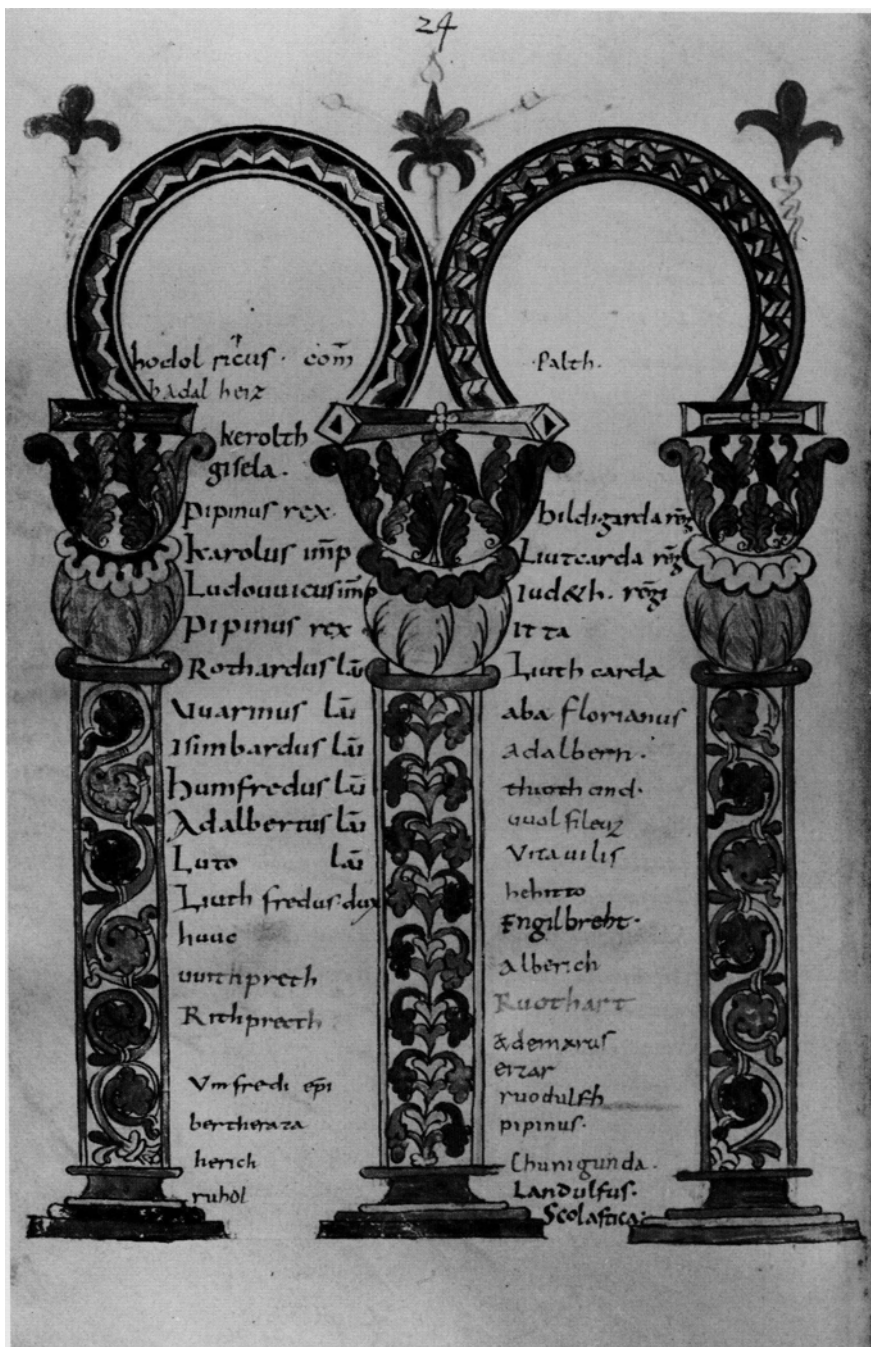 24
hodolricus · com̄
hadalherz
kerolth
gisela ·
pipinus rex ·
karolus im̄p
Ludouuicus im̄p
pipinus rex
Rothardus lāi
Uuarinus lāi
Isimbardus lāi
humfredus lāi
Adalbertus lāi
Luto lāi
Liuthfredus · dux
huuc
uuithpreth
Rithpreth
Vmfredi ep̄i
herich
ruhol
· Palth ·
hildigarda rēg
Liutcarda rēg
Iud&h · rēgi
Itta
Liuthcarda
aba florianus
Adalbern ·
Vitauilis
hehitto
Engilbreht ·
Alberich
Ruothart
Ademarus
erzar
ruodulfh
pipinus ·
Chunigunda ·
Landulfus ·
Scolastica ·